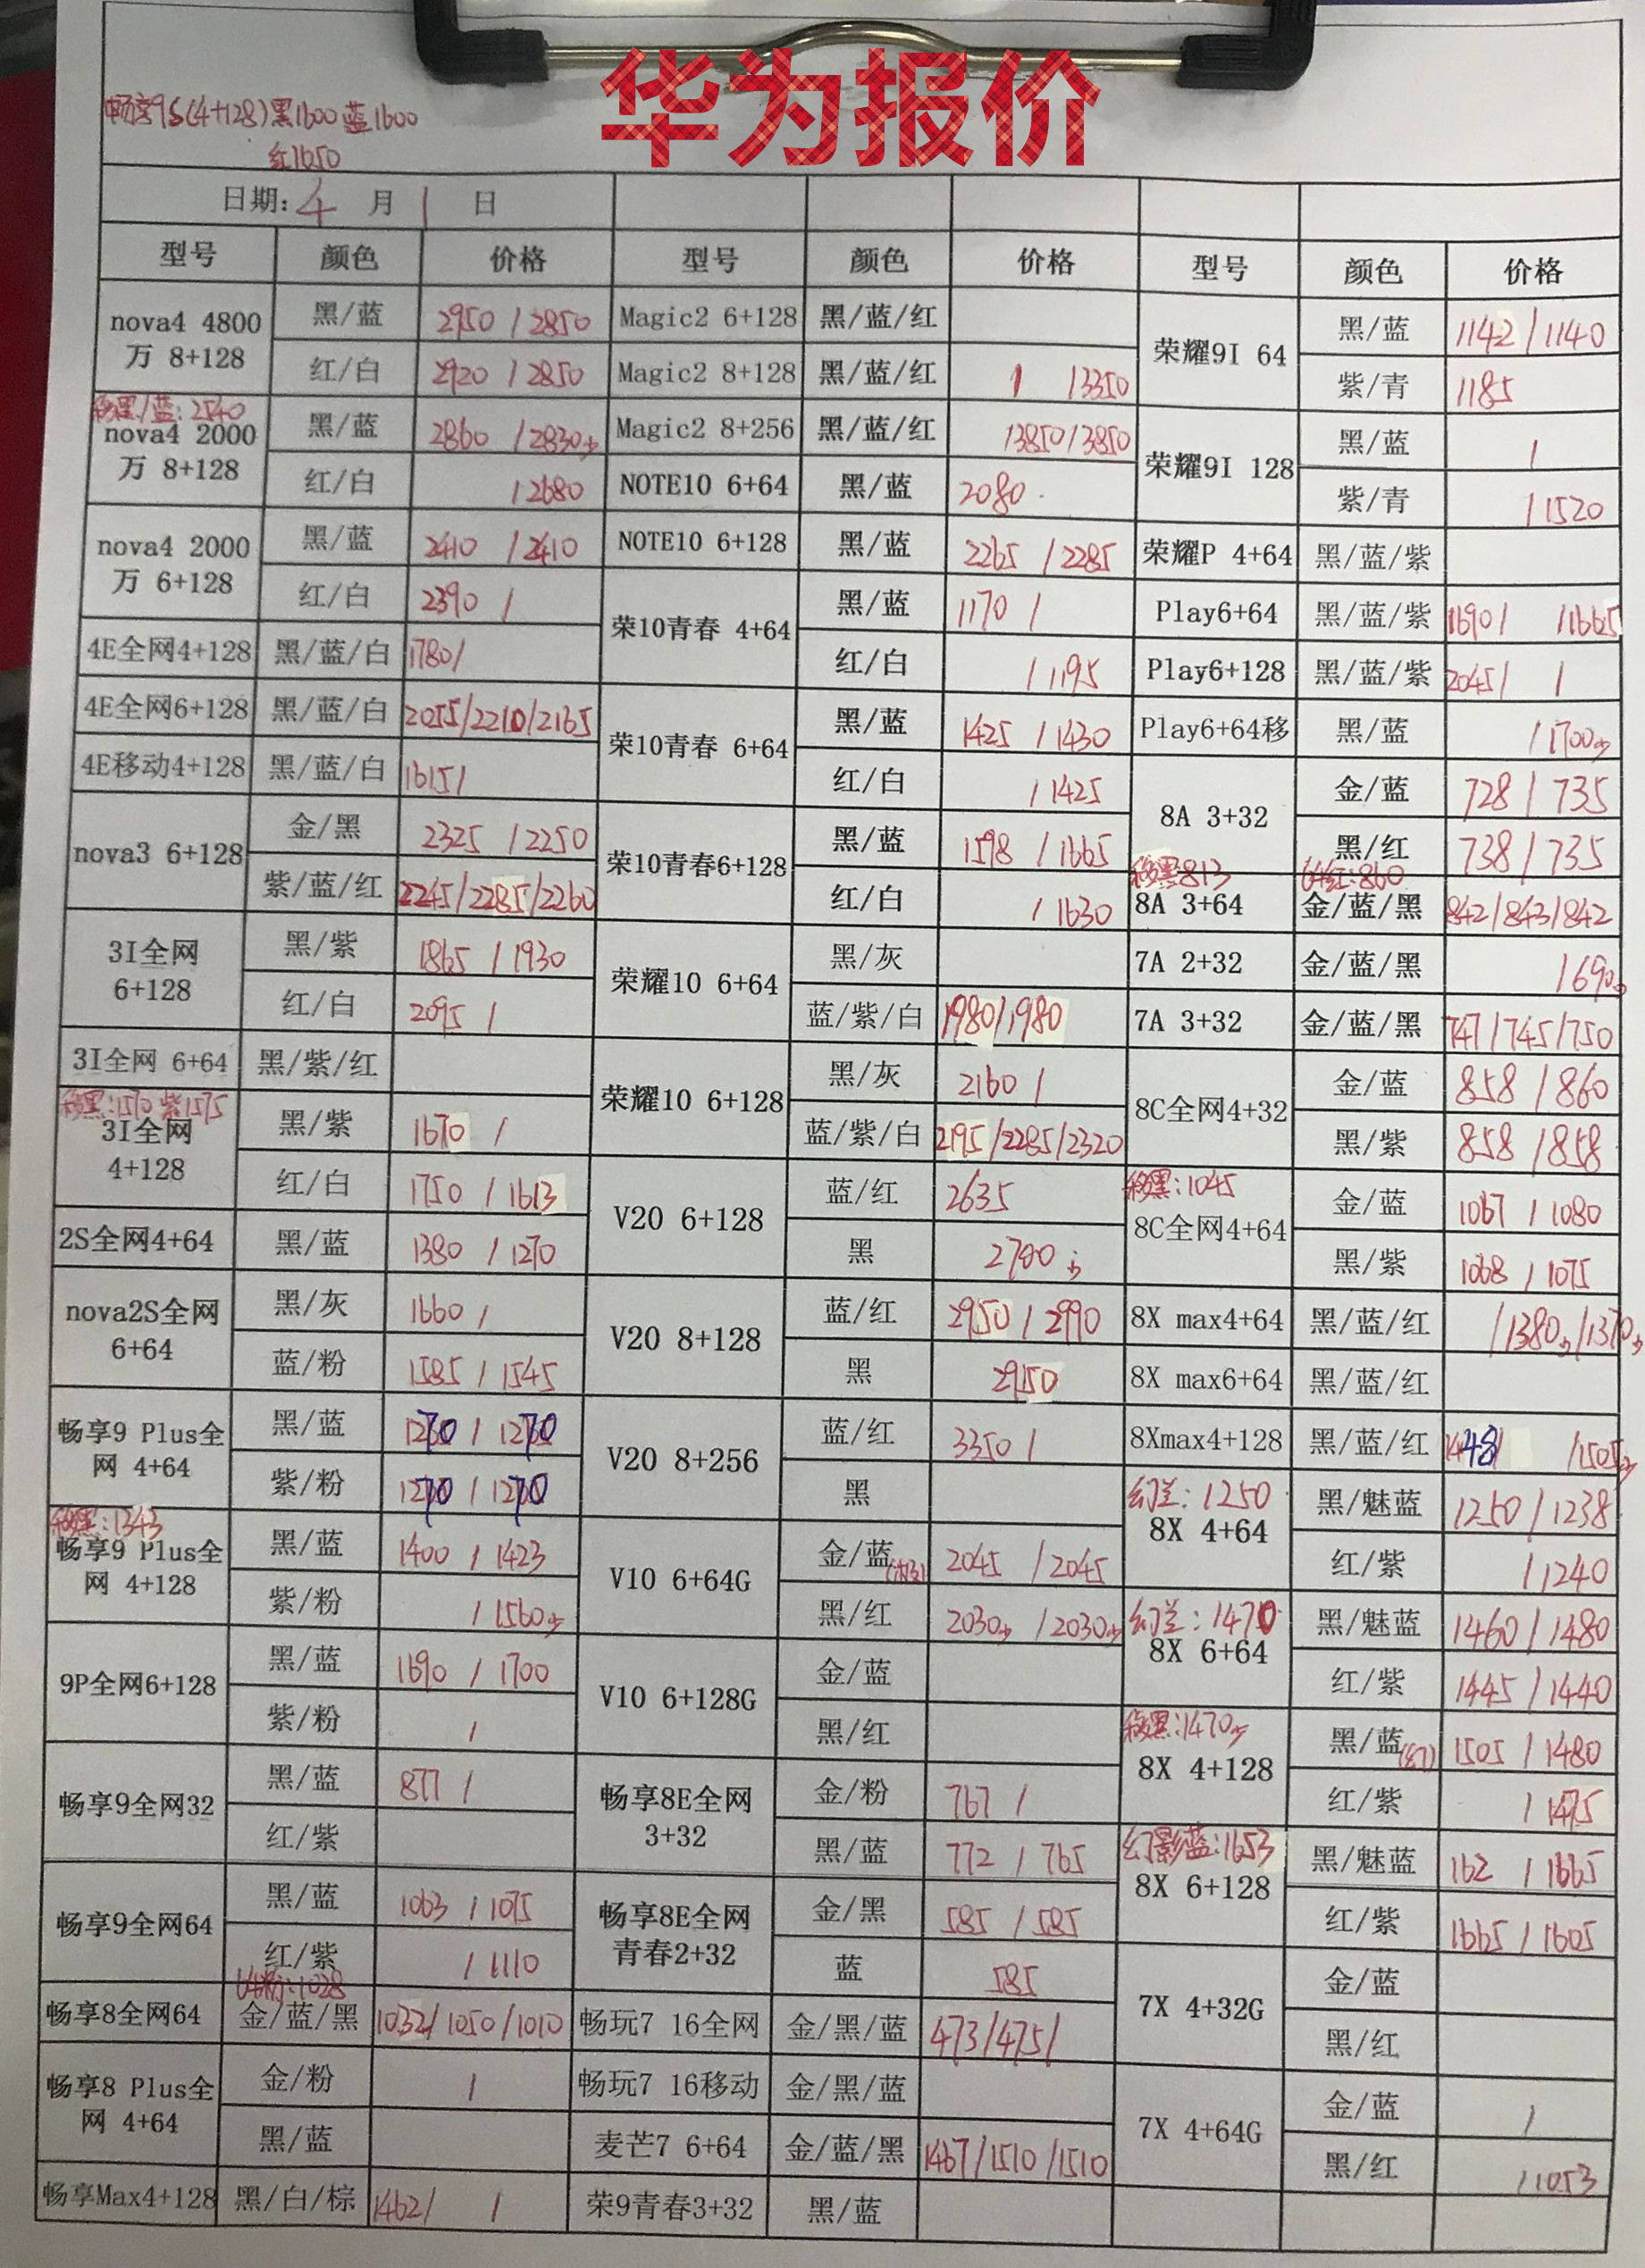 华为报价
畅享9S(4+128)黑1600 蓝1600
红1650
日期: 4 月 1 日
型号 颜色 价格 型号 颜色 价格 型号 颜色 价格
nova4 4800万 8+128 黑/蓝 2950 / 2850
红/白 2920 / 2850
移黑/蓝: 2540
nova4 2000万 8+128 黑/蓝 2860 / 2830少
红/白 / 2680
nova4 2000万 6+128 黑/蓝 2410 / 2410
红/白 2390 /
4E全网4+128 黑/蓝/白 1780/
4E全网6+128 黑/蓝/白 2055/2210/2165
4E移动4+128 黑/蓝/白 1615/
nova3 6+128 金/黑 2325 / 2250
紫/蓝/红 2245/2285/2260
3I全网 6+128 黑/紫 1865 / 1930
红/白 2095 /
3I全网 6+64 黑/紫/红
移黑:1570 紫1575
3I全网 4+128 黑/紫 1670 /
红/白 1750 / 1613
2S全网4+64 黑/蓝 1380 / 1270
nova2S全网 6+64 黑/灰 1660 /
蓝/粉 1585 / 1545
畅享9 Plus全网 4+64 黑/蓝 1270 / 1270
紫/粉 1270 / 1270
移黑:1343
畅享9 Plus全网 4+128 黑/蓝 1400 / 1423
紫/粉 / 1560少
9P全网6+128 黑/蓝 1690 / 1700
紫/粉 /
畅享9全网32 黑/蓝 877 /
红/紫
畅享9全网64 黑/蓝 1063 / 1075
红/紫 / 1110
64粉:1028
畅享8全网64 金/蓝/黑 1032/1050/1010
畅享8 Plus全网 4+64 金/粉 /
黑/蓝
畅享Max4+128 黑/白/棕 1462/ /
Magic2 6+128 黑/蓝/红
Magic2 8+128 黑/蓝/红 / /3350
Magic2 8+256 黑/蓝/红 /3850/3850
NOTE10 6+64 黑/蓝 2080
NOTE10 6+128 黑/蓝 2265 / 2285
荣10青春 4+64 黑/蓝 1170 /
红/白 / 1195
荣10青春 6+64 黑/蓝 1425 / 1430
红/白 / 1425
荣10青春6+128 黑/蓝 1598 / 1665
红/白 / 1630
荣耀10 6+64 黑/灰
蓝/紫/白 1980/1980
荣耀10 6+128 黑/灰 2160 /
蓝/紫/白 2195/2285/2320
V20 6+128 蓝/红 2635
黑 2700少
V20 8+128 蓝/红 2950 / 2990
黑 2950
V20 8+256 蓝/红 3350 /
黑
V10 6+64G 金/蓝 2045 / 2045
黑/红 2030少 / 2030少
V10 6+128G 金/蓝
黑/红
畅享8E全网 3+32 金/粉 767 /
黑/蓝 772 / 765
畅享8E全网青春2+32 金/黑 585 / 585
蓝 585
畅玩7 16全网 金/黑/蓝 473/475/
畅玩7 16移动 金/黑/蓝
麦芒7 6+64 金/蓝/黑 1467/1510/1510
荣9青春3+32 黑/蓝
荣耀9I 64 黑/蓝 1142 / 1140
紫/青 1185
荣耀9I 128 黑/蓝 /
紫/青 / 1520
荣耀P 4+64 黑/蓝/紫
Play6+64 黑/蓝/紫 1690/ /1665
Play6+128 黑/蓝/紫 2045/ /
Play6+64移 黑/蓝 / 1700少
8A 3+32 金/蓝 728 / 735
黑/红 738 / 735
移黑813 64红:860
8A 3+64 金/蓝/黑 842/843/842
7A 2+32 金/蓝/黑 / 690少
7A 3+32 金/蓝/黑 747/745/750
8C全网4+32 金/蓝 858 / 860
黑/紫 858 / 858
移黑:1045
8C全网4+64 金/蓝 1067 / 1080
黑/紫 1068 / 1075
8X max4+64 黑/蓝/红 /1380少/1370少
8X max6+64 黑/蓝/红
8Xmax4+128 黑/蓝/红 1448/ /1505少
幻兰: 1250
8X 4+64 黑/魅蓝 1250 / 1238
红/紫 / 1240
幻兰: 1470
8X 6+64 黑/魅蓝 1460 / 1480
红/紫 1445 / 1440
移黑:1470少
8X 4+128 黑/蓝 1505 / 1480
红/紫 / 1475
幻影蓝:1653
8X 6+128 黑/魅蓝 162 / 1665
红/紫 1665 / 1605
7X 4+32G 金/蓝
黑/红
7X 4+64G 金/蓝 /
黑/红 / 1053